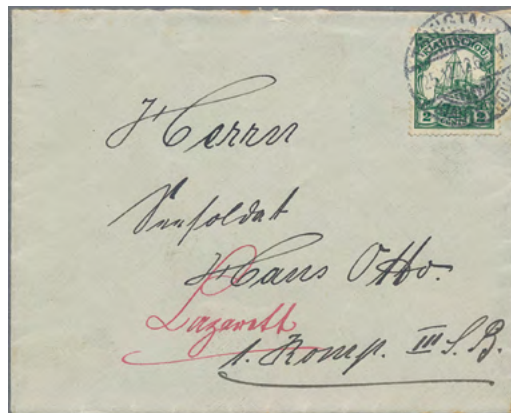 KIAUTSCHOU
2 2
Herrn
Seesoldat
Hans Otto.
Lazarett
1. Komp. III S. B.